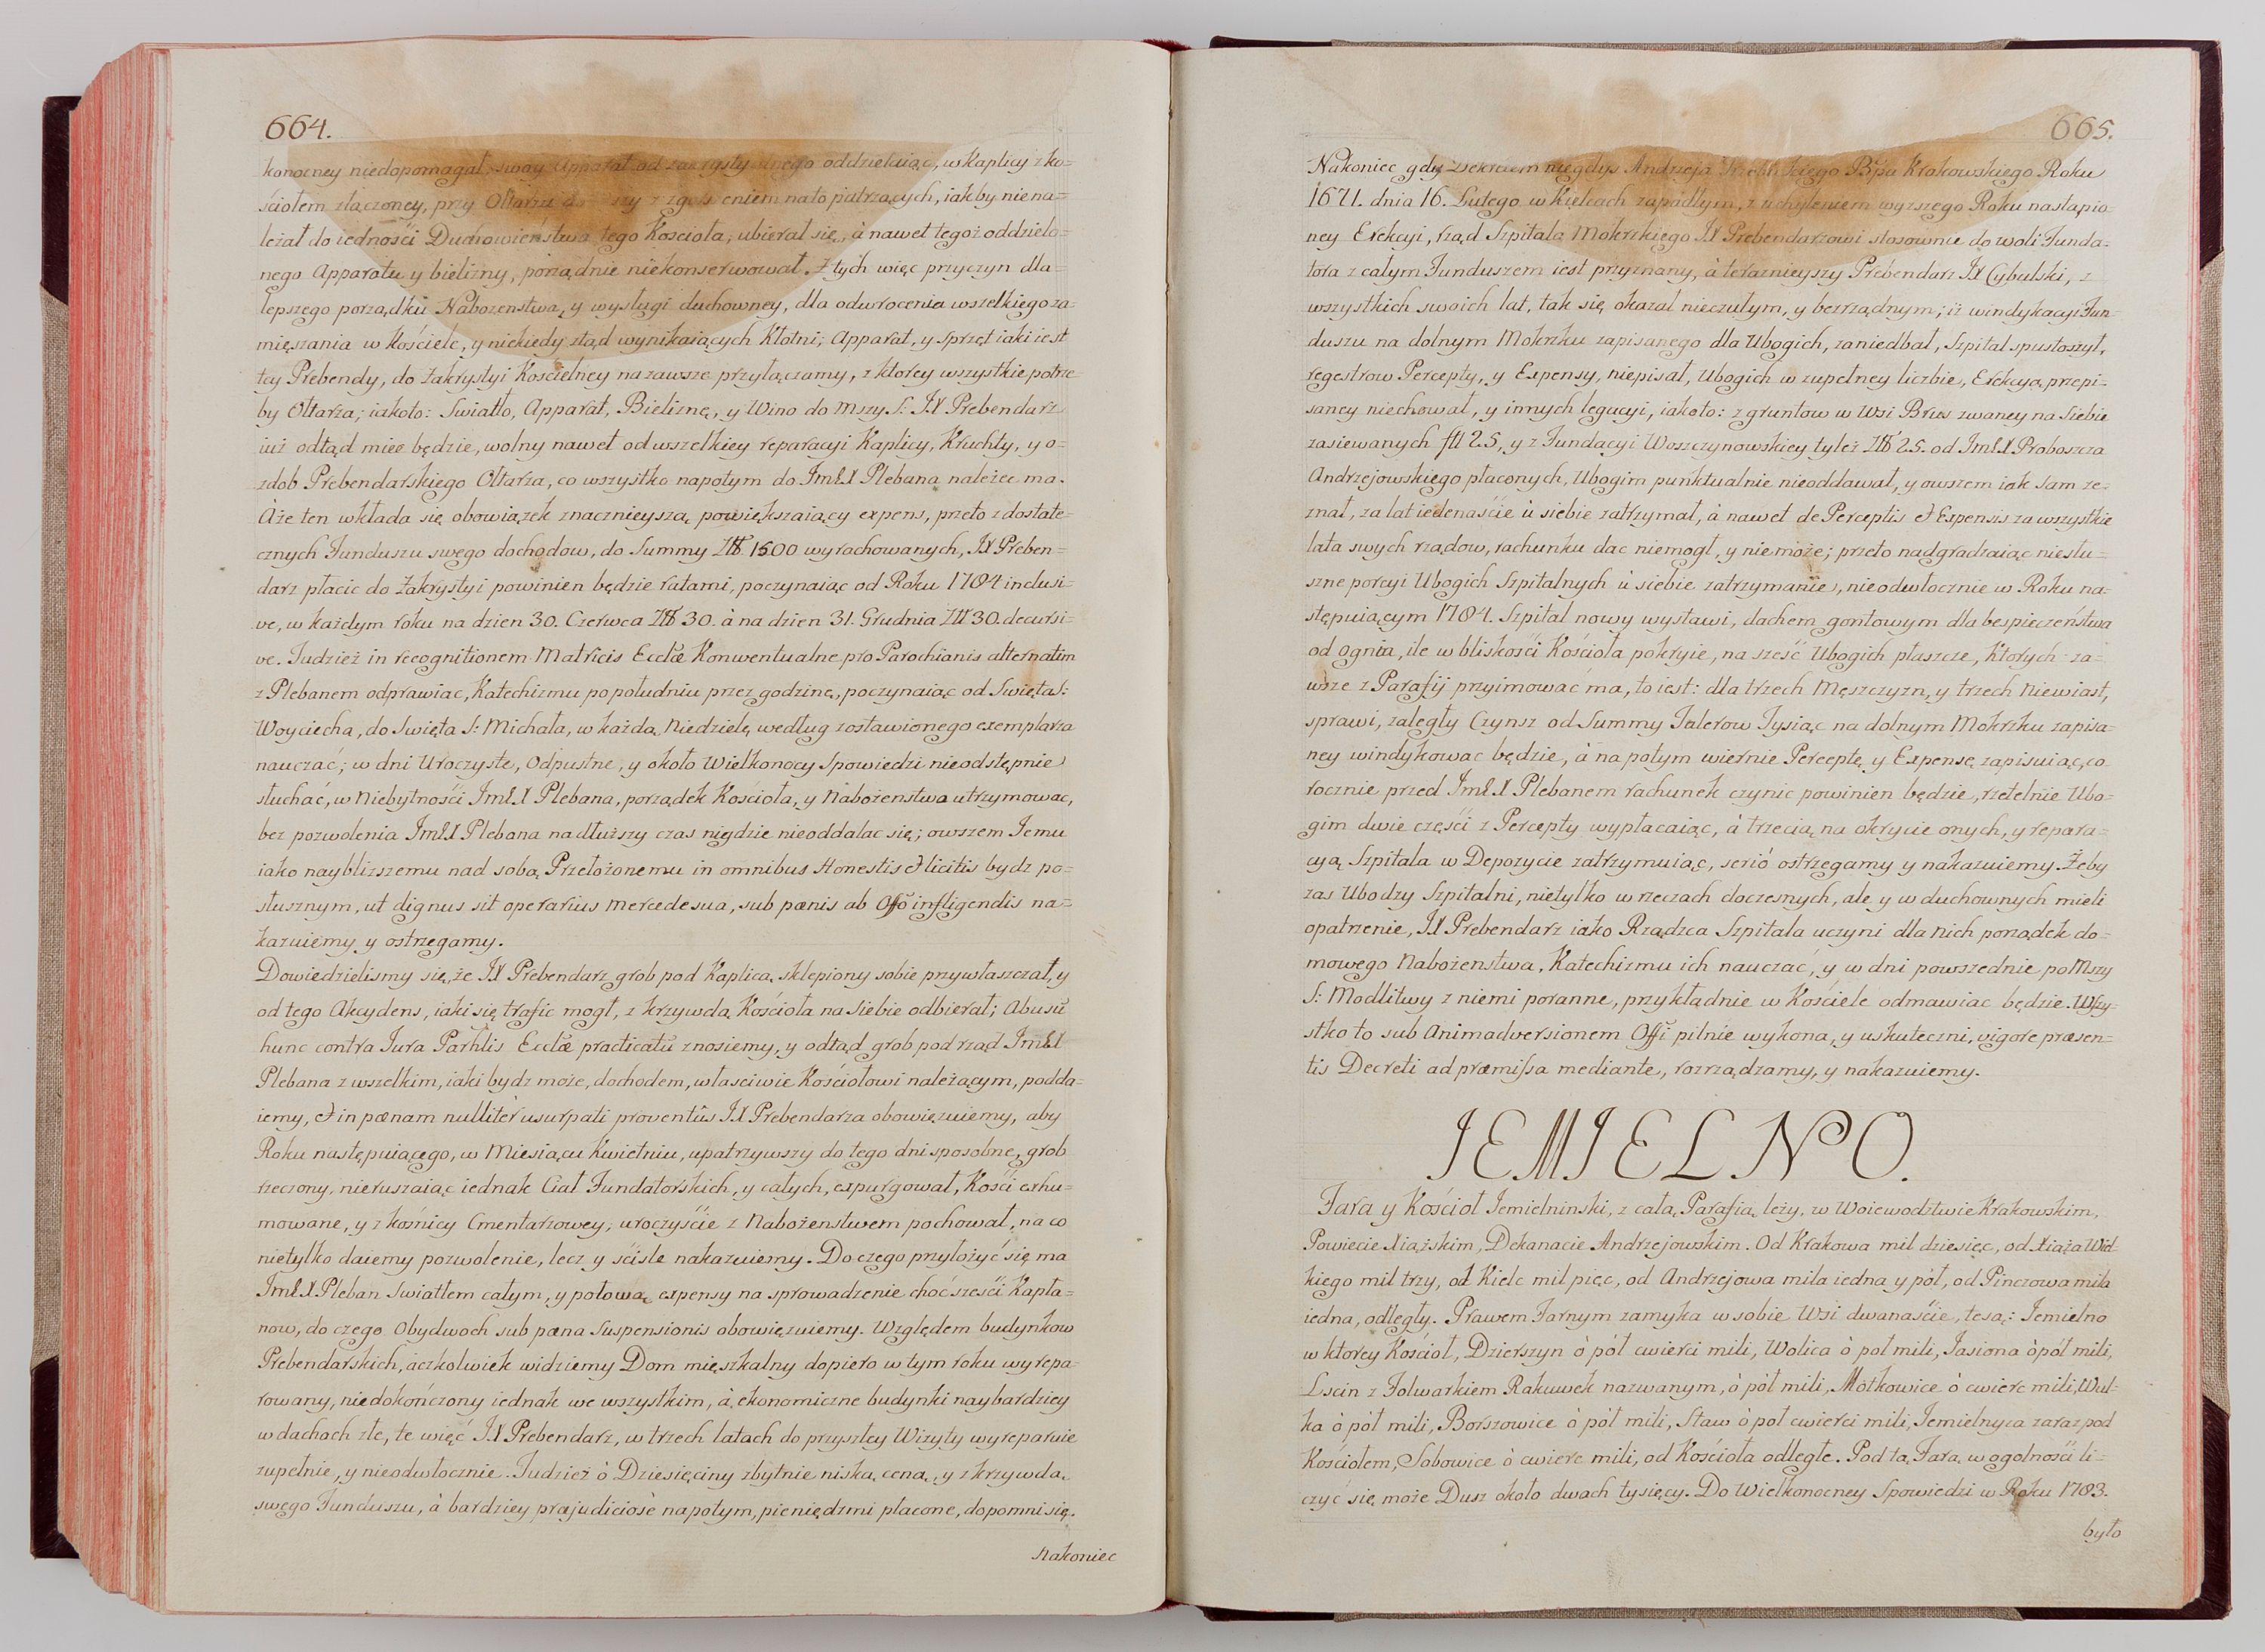 664.
konocney niedopomagał, swoy Apparat od zakrystyi oddzielaiąc, w Kaplicy z ko=
ściołem złączoney, przy Ołtarzu z zgorszeniem na to patrzących, iakby nie na=
leżał do iedności Duchowieństwa tego Kościoła, ubierał się, à nawet tegoż oddzielo=
nego Apparatu y bielizny, porządnie niekonserwował. Z tych więc przyczyn dla=
lepszego porządku Nabozenstwa, y wysługi duchowney, dla odwrocenia wszelkiego za=
mięszania w Kościele, y niekiedy ztąd wynikaiących Kłotni; Apparat, y Sprzęt iaki iest
tey Prebendy, do Zakrystyi Koscielney na zawsze przyłączamy, z ktorey wszystkie potrze=
by Ołtarza; iakoto: Swiatło, Apparat, Bieliznę, y Wino do Mszy S: JX Prebendarz
iuż odtąd miec będzie, wolny nawet od wszelkiey reparacyi Kaplicy, Kruchty, y o=
zdob Prebendarskiego Ołtarza, co wszystko napotym do JmLX Plebana należec ma.
Aże ten wkłada się obowiązek znacznieyszą powiększaiący expens, przeto z dostate=
cznych Funduszu swego dochodow, do Summy Złt 1500 wyrachowanych, JX Preben=
darz płacic do Zakrystyi powinien będzie ratami, poczynaiąc od Roku 1784 inclusi=
ve, w każdym roku na dzien 30. Czerwca Złt 30. à na dzien 31. Grudnia Złt 30. decursi=
ve. Tudzież in recognitionem Matricis Eccłæ Konwentualne pro Parochianis alternatim
z Plebanem odprawiac, Katechizmu popołudniu przez godzinę, poczynaiąc od Swięta S:
Woyciecha, do Swięta S: Michała, w każdą Niedzielę według zostawionego exemplarza
nauczać; w dni Uroczyste, Odpustne, y około Wielkonocy Spowiedzi nieodstępnie
słuchać, w Niebytności JmLX Plebana, porządek Kościoła, y Nabożenstwa utrzymowac,
bez pozwolenia JmLX Plebana na dłuższy czas nigdzie nieoddalac się; owszem Jemu
iako naybliższemu nad sobą Przełożonemu in omnibus Honestis & licitis bydz po=
słusznym, ut dignus sit operarius mercede sua, sub pœnis ab Offo infligendis na=
kazuiemy y ostrzegamy.
Dowiedzielismy się, że JX Prebendarz grob pod Kaplicą sklepiony sobie przywłaszczał, y
od tego Akcydens, iaki się trafic mogł, z krzywdą Kościoła na siebie odbierał; Abusū
hunc contra Jura Parhlis Eccłæ practicatū znosiemy, y odtąd grob pod rząd JmLX
Plebana z wszelkim, iaki bydz może, dochodem, własciwie Kościołowi należącym, podda=
iemy, & in pœnam nulliter usurpati proventûs JX Prebendarza obowięzuiemy, aby
Roku następuiącego, w Miesiącu Kwietniu, upatrzywszy do tego dni sposobne, grob
rzeczony, nieruszaiąc iednak Ciał Fundatorskich, y całych, expurgował, Kości exhu=
mowane, y z kośnicy Cmentarzowey, uroczyście z Nabożenstwem pochował, na co
nietylko daiemy pozwolenie, lecz y ściśle nakazuiemy. Do czego przyłożyć się ma
JmLX Pleban Swiatłem całym, y połową expensy na sprowadzenie choć sześci Kapła=
now, do czego Obydwoch sub pœna Suspensionis obowięzuiemy. Względem budynkow
Prebendarskich, aczkolwiek widziemy Dom mięszkalny dopiero w tym roku wyrepa=
rowany, niedokończony iednak we wszystkim, à ekonomiczne budynki naybardziey
w dachach złe, te więć JX Prebendarz, w trzech latach do przyszłey Wizyty wyreparuie
zupełnie, y nieodwłocznie. Tudzież ò Dziesięciny zbytnie niską ceną, y z krzywdą
swego Funduszu, à bardziey præjudiciosè napotym, pieniędzmi płacone, dopomni się.
Nakoniec
665.
Nakoniec gdy Dekretem niegdys Andrzeja Bp̃a Krakowskiego Roku
1671. dnia 16. Lutego w Kielcach zapadłym, z uchyleniem wyzszego Roku nastąpio=
ney Erekcyi, rząd Szpitala Mokrskiego JX Prebendarzowi stosownie do woli Funda=
tora z całym Funduszem iest przyznany, à teraznieyszy Prebendarz JX Cybulski, z
wszystkich swoich lat, tak się okazał nieczułym, y bezrządnym; iż windykacyi Fun=
duszu na dolnym Mokrzku zapisanego dla Ubogich, zaniedbał, Szpital spustoszył,
regestrow Percepty, y Expensy, niepisał, Ubogich w zupełney liczbie, Erekcyą przepi=
saney niechował, y innych legacyi, iakoto: z gruntow w Wsi Brus zwaney na siebie
zasiewanych fłł 25, y z Fundacyi Woszczynowskiey tyleż Złt 25. od JmLX Proboszcza
Andrzejowskiego płaconych, Ubogim punktualnie nieoddawał, y owszem iak sam ze=
znał, za lat iedenaście ù siebie zatrzymał, à nawet de Perceptis & Expensis za wszystkie
lata swych rządow, rachunku dac niemogł, y niemoże; przeto nadgradzaiąc niesłu=
szne porcyi Ubogich Szpitalnych ù siebie zatrzymanie, nieodwłocznie w Roku na=
stępuiącym 1784. Szpital nowy wystawi, dachem gontowym dla bespieczeństwa
od ognia, ile w bliskości Kościoła pokryie, na sześć Ubogich płaszcze, Ktorych za=
wsze z Parafij przyimować ma, to iest: dla trzech Męszczyzn, y trzech Niewiast,
sprawi, zaległy Czynsz od Summy Talerow Tysiąc na dolnym Mokrzku zapisa=
ney windykowac będzie, à napotym wiernie Perceptę y Expensę zapisuiąc, co
rocznie przed JmLX Plebanem rachunek czynic powinien będzie, rzetelnie Ubo=
gim dwie części z Percepty wypłacaiąc, à trzecią na okrycie onych, y repara=
cyą Szpitala w Depozycie zatrzymuiąc, seriò ostrzegamy y nakazuiemy. Żeby
zas Ubodzy Szpitalni, nietylko w rzeczach doczesnych, ale y w duchownych mieli
opatrzenie, JX Prebendarz iako Rządzca Szpitala uczyni dla nich porządek do=
mowego Nabożenstwa, Katechizmu ich nauczać, y w dni powszednie po Mszy
S: Modlitwy z niemi poranne, przykładnie w Kościele odmawiac będzie. Wszy=
stko to sub Animadversionem Offi pilnie wykona, y uskuteczni, vigore præsen=
tis Decreti ad præmissa mediante, rozrządzamy, y nakazuiemy.
JEMJELNO.
Fara y Kościoł Jemielninski, z całą Parafią leży, w Woiewodztwie Krakowskim,
Powiecie Xiąźskim, Dekanacie Andrzejowskim. Od Krakowa mil dziesięc, od Xiąża Wiel=
kiego mil trzy, od Kielc mil pięc, od Andrzejowa mila iedna y pół, od Pinczowa mila
iedna, odległy. Prawem Farnym zamyka w sobie Wsi dwanaście, te są: Jemielno
w ktorey Kościoł, Dzierszyn ò pół cwierci mili, Wolica ò poł mili, Jasiona ò pół mili,
Lscin z Folwarkiem Rakuwek nazwanym, ò pół mili, Motkowice ò cwierc mili, Wul=
ka ò pół mili, Borszowice ò pół mili, Staw ò poł cwierci mili, Jemielnyca zaraz pod
Kościołem, Sobowice ò cwierc mili, od Kościoła odległe. Pod tą Farą w ogolności li=
czyć się może Dusz około dwach tysięcy. Do Wielkonocney Spowiedzi w Roku 1783.
było